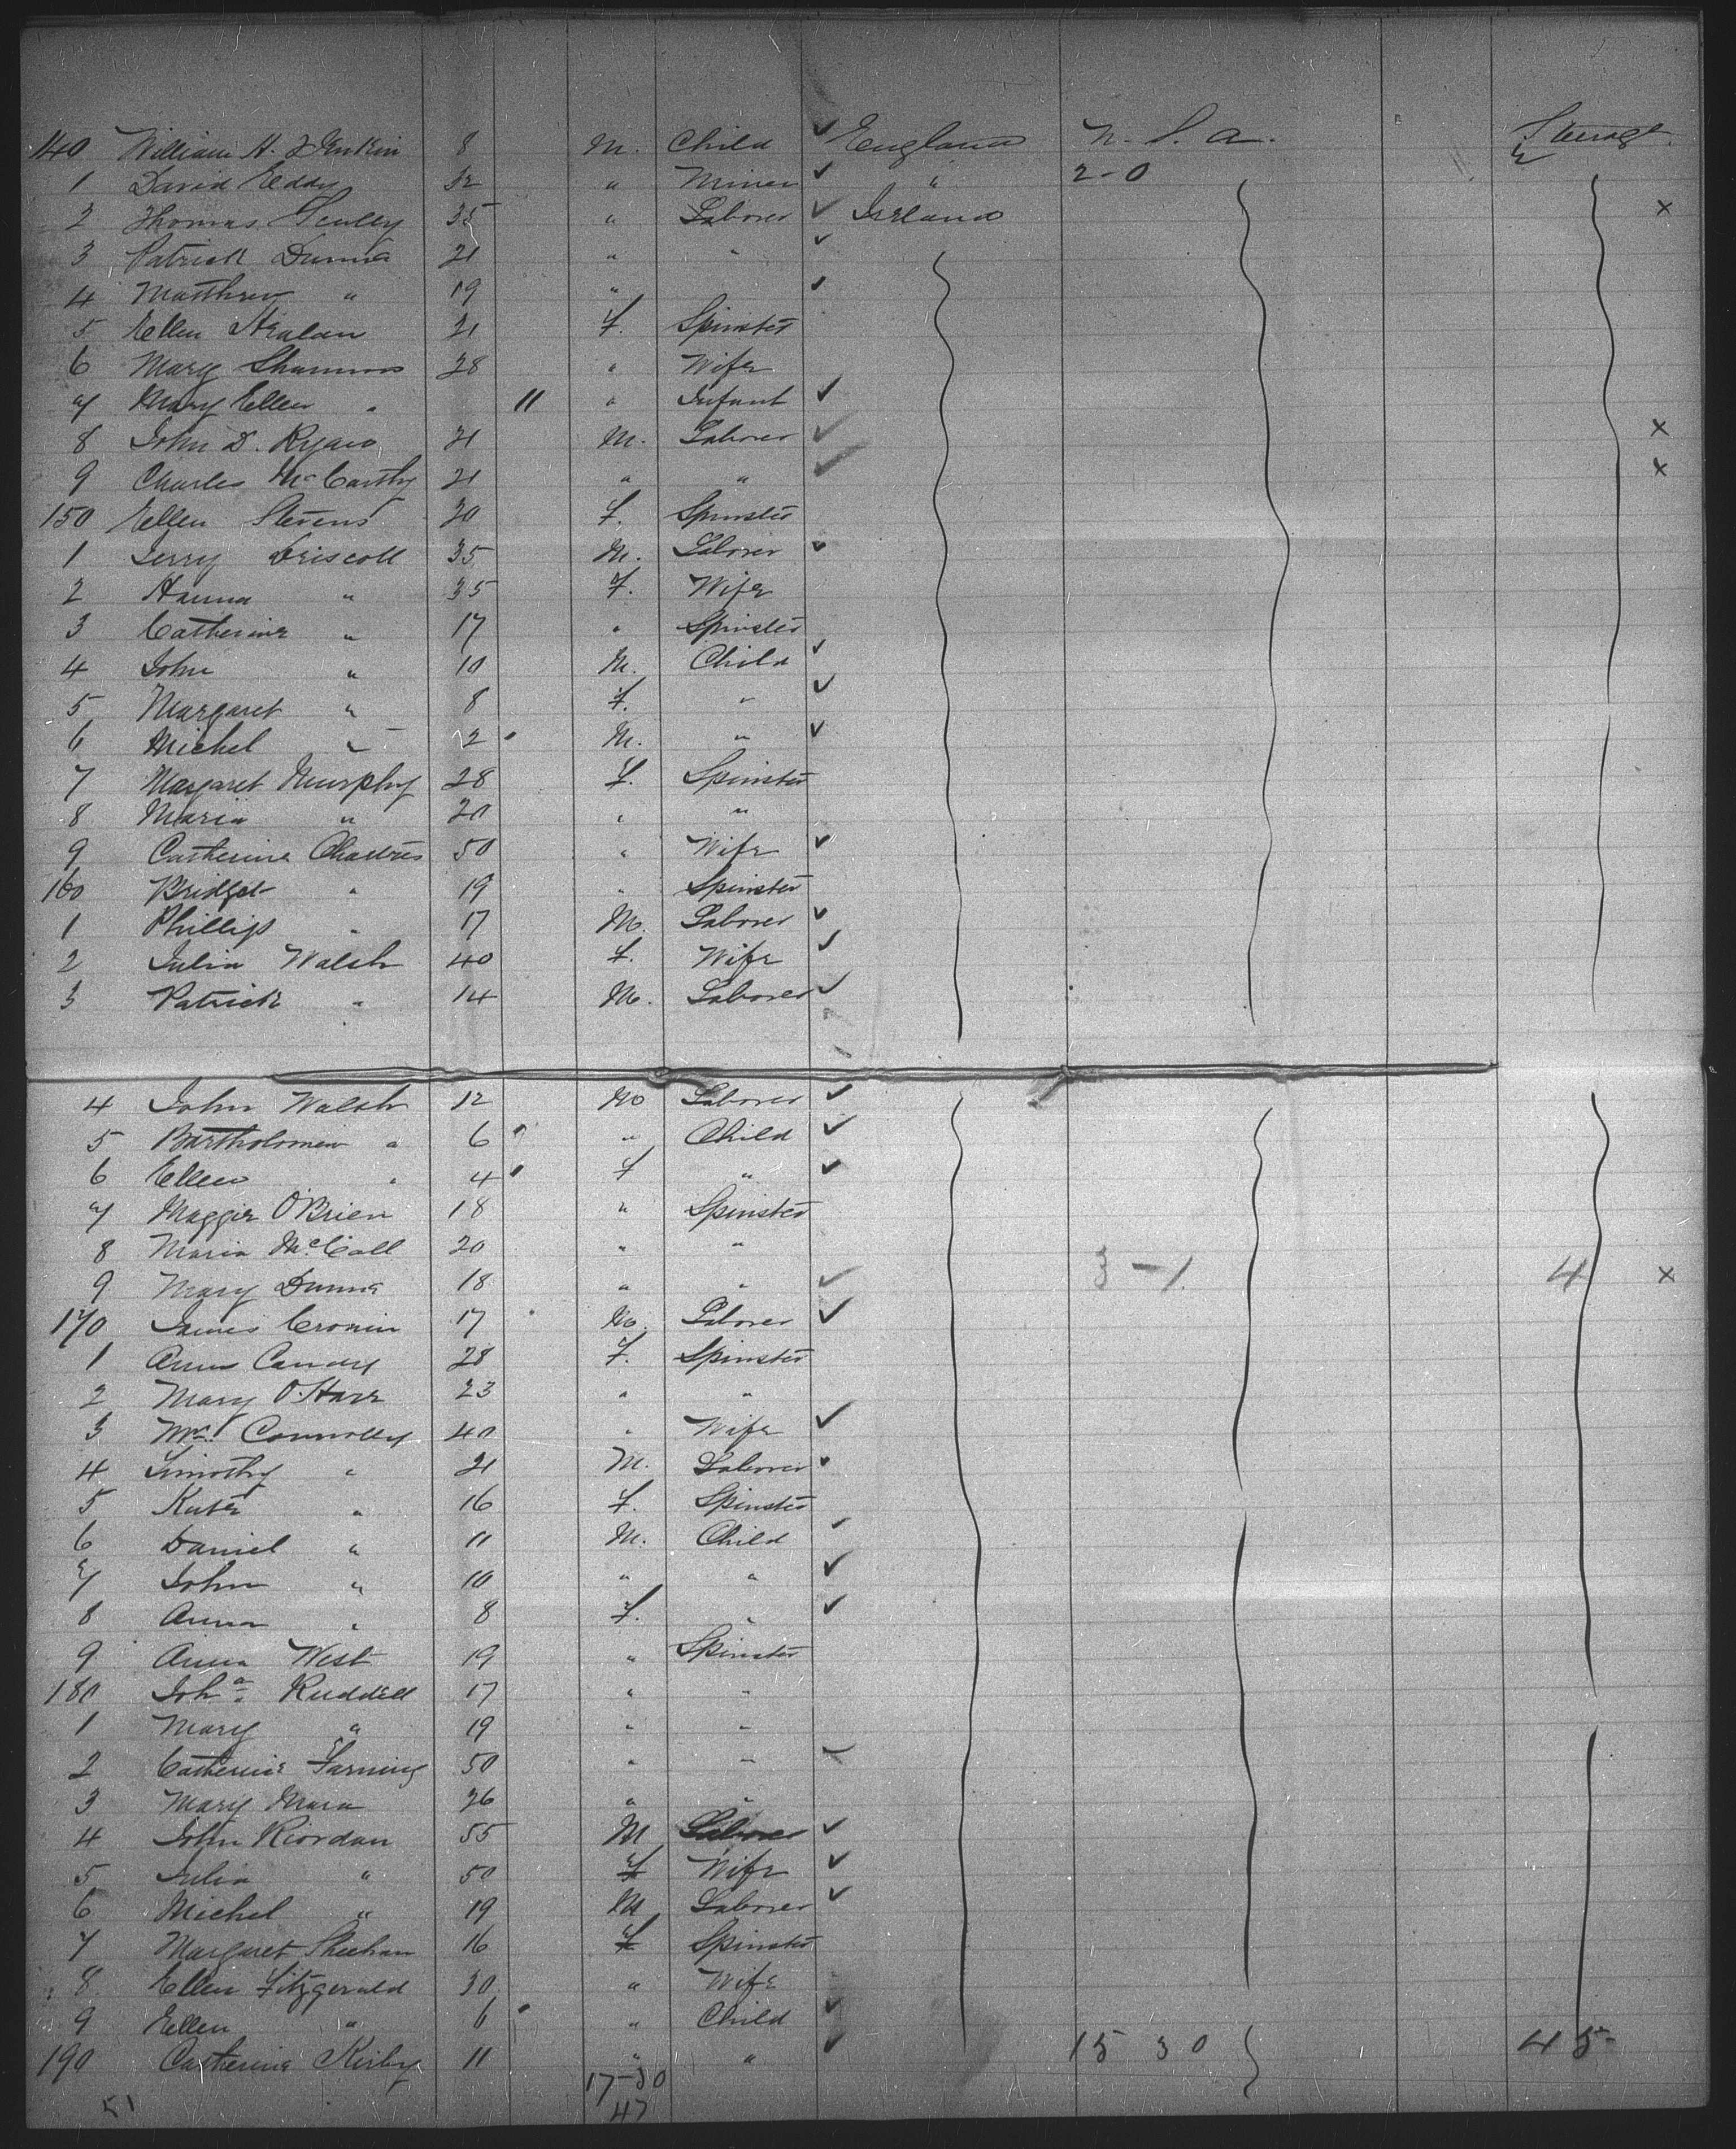 140 William H. Jenkin 8 M. Child ✓ England U. S. A. Steerage
1 David Eddy 32 " Miner ✓ " 2-0 2
2 Thomas 35 " Laborer ✓ Ireland x
3 Patrick Dunne 21 " " ✓
4 Matthew " 19 " ✓
5 Ellen 21 F. Spinster
6 Mary Shannon 28 " Wife
7 Mary Ellen " 11 " Infant ✓
8 John D. Ryan 21 M. Laborer ✓ x
9 Charles McCarthy 21 " " ✓ x
150 Ellen Stevens 20 F. Spinster
1 Jerry Driscoll 35 M. Laborer ✓
2 Hanna " 35 F. Wife
3 Catherine " 17 " Spinster
4 John " 10 M. Child ✓
5 Margaret " 8 F. " ✓
6 Michel " 2 M. " ✓
7 Margaret Murphy 28 F. Spinster
8 Maria " 20 " "
9 Catherine Chartres 50 " Wife ✓
160 Bridget " 19 " Spinster
1 Phillip " 17 M. Laborer ✓
2 Julia Walsh 40 F. Wife ✓
3 Patrick " 14 M. Laborer ✓
4 John Walsh 12 M Laborer ✓
5 Bartholomew " 6 " Child ✓
6 Ellen " 4 F " ✓
7 Maggie O'Brien 18 " Spinster
8 Maria McCall 20 " "
9 Mary Dunne 18 " " ✓ 3-1 4 x
170 James Cronin 17 M. Laborer ✓
1 Anna 28 F. Spinster
2 Mary O'Hare 23 " "
3 Mrs. Connolly 40 " Wife ✓
4 Timothy " 21 M. Laborer ✓
5 Kate " 16 F. Spinster
6 Daniel " 11 M. Child ✓
7 John " 10 " " ✓
8 Anna " 8 F. " ✓
9 Anna West 19 " Spinster
180 Joha Ruddell 17 " "
1 Mary " 19 " "
2 Catherine Farning 50 " " ✓
3 Mary Mara 26 " "
4 John Riordan 55 M Laborer ✓
5 Julia " 50 F Wife ✓
6 Michel " 19 M Laborer ✓
7 Margaret Sheehan 16 F Spinster
8 Ellen Fitzgerald 30 " Wife
9 Ellen " 6 " Child ✓
190 Catherine Kirby 11 " " ✓ 15 30 45
17-30
51 47